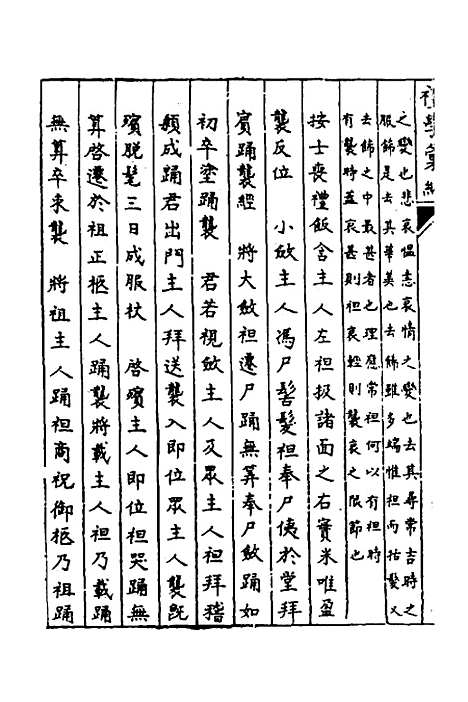 禮學彙編
之變也悲哀慍恚哀情之變也去其尋常吉時之
服飾是去其華美也去飾雖多端惟袒而括髮又
去飾之中最甚者也理應常袒何以有袒時
有襲時蓋哀甚則袒哀輕則襲哀之限節也
按士喪禮飯含主人左袒扱諸面之右實米唯盈
襲反位　小斂主人馮尸髻髮袒奉尸侇於堂拜
賓踊襲絰　將大斂袒遷尸踊無算奉尸斂踊如
初卒塗踊襲　君若視斂主人及眾主人袒拜稽
顙成踊君出門主人拜送襲入即位眾主人襲既
殯脫髦三日成服杖　啓殯主人即位袒哭踊無
算啓遷於祖正柩主人踊襲將載主人袒乃載踊
無算卒束襲　將祖主人踊袒商祝御柩乃祖踊